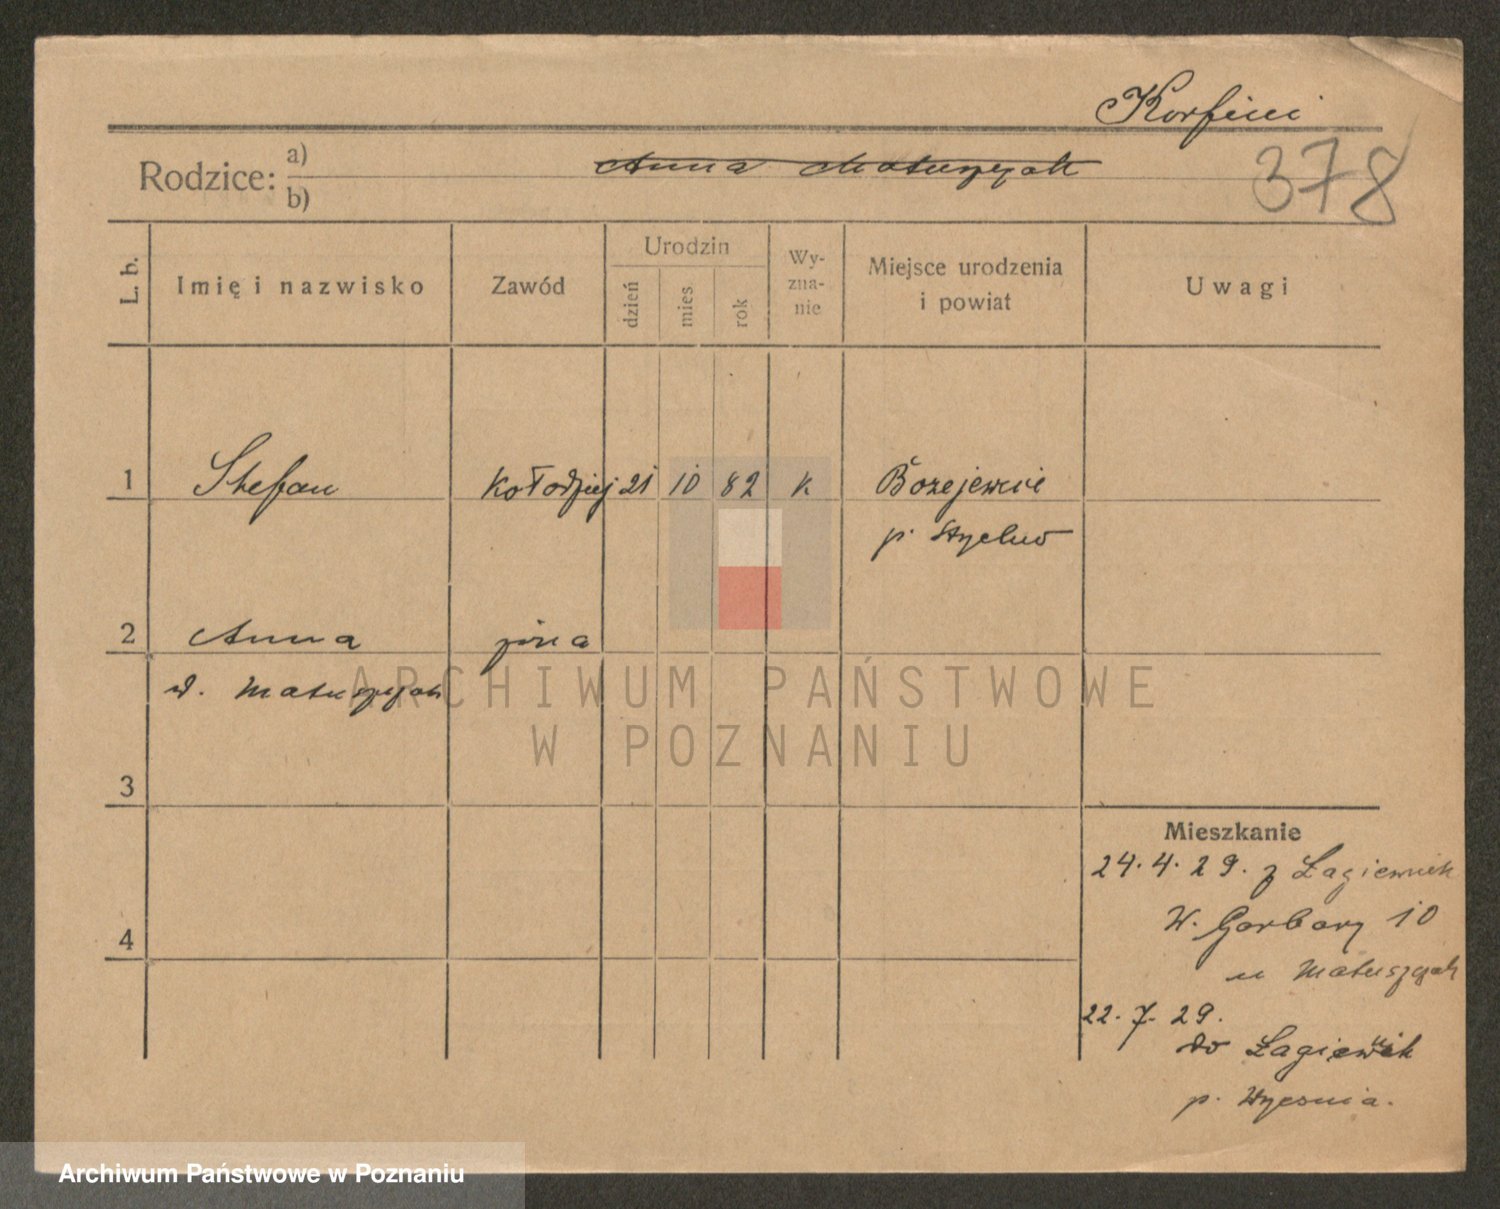 Korfini
Rodzice: a)
b)
Anna Matuszczak
378
L. b.
Imię i nazwisko
Zawód
Urodzin
dzień
mies
rok
Wy-
zna-
nie
Miejsce urodzenia
i powiat
Uwagi
1 Stefan Kołodziej 21 10 82 K Bożejewice
p. Strzelno
2 Anna żona
d. Matuszczak
3
4
Mieszkanie
24.4.29. z Łagiewnik
W. Garbary 10
u Matuszczak
22.7.29.
do Łagiewnik
p. Września.
ARCHIWUM PAŃSTWOWE
W POZNANIU
Archiwum Państwowe w Poznaniu